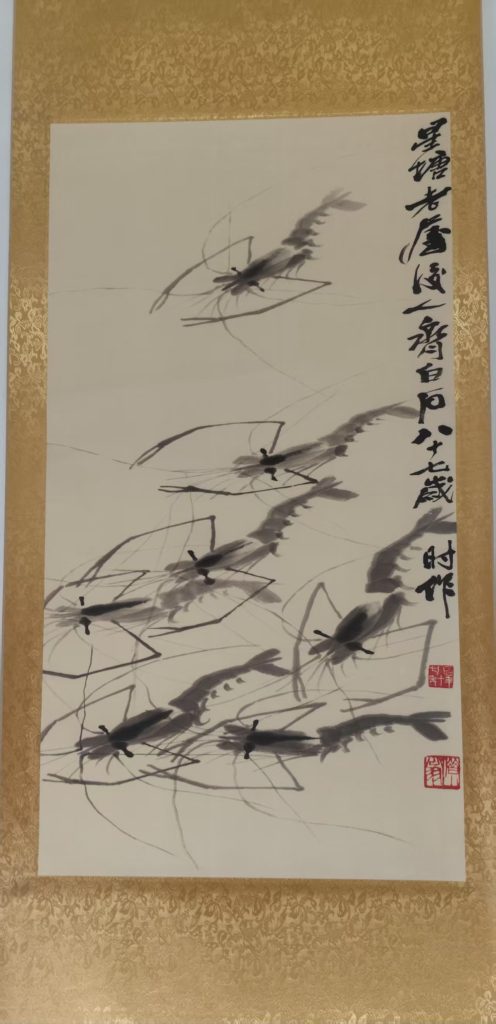 星塘老屋後人齊白石八十七歲
时作